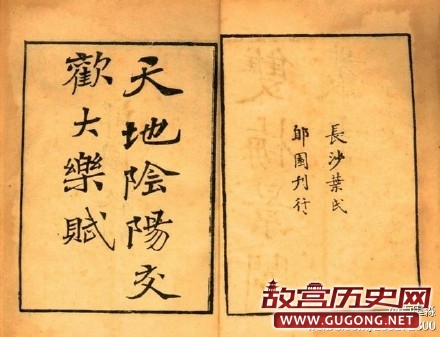 天地陰陽交
歡大樂賦
長沙葉氏
郋園刊行
故宫历史网
WWW.GUGONG.NET